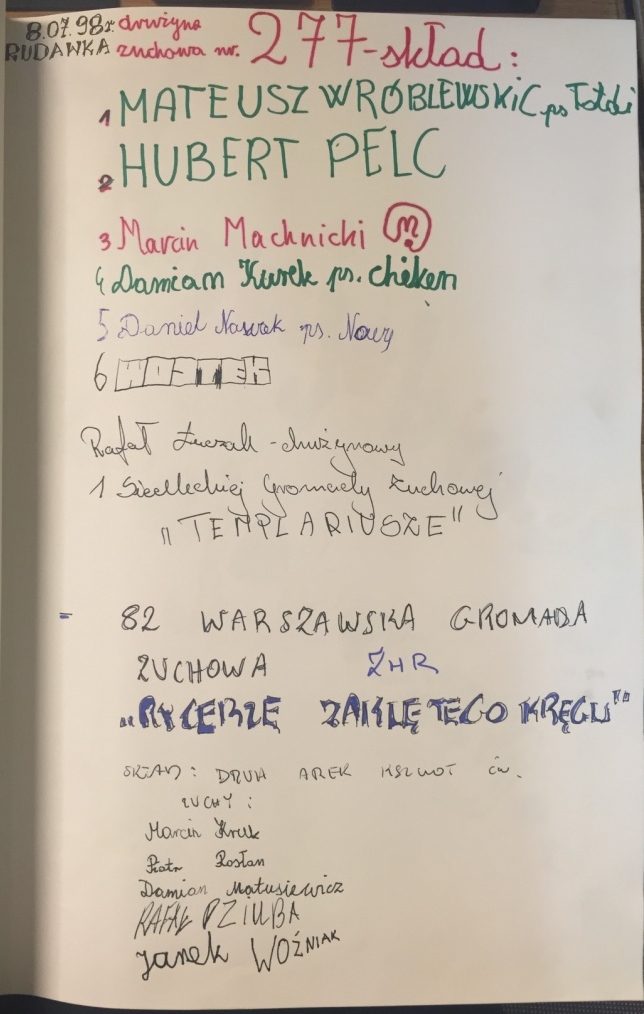 8.07.98r. drużyna
RUDAWKA zuchowa nr. 277-skład:
1 MATEUSZ WRÓBLEWSKI ps
2 HUBERT PELC
3 Marcin Machnicki M
4 Damian Kurek ps. chiken
5 Daniel Nowak ps. Nowy
6
Rafał Łuczak - drużynowy
1 Siedleckiej Gromady Zuchowej
"TEMPLARIUSZE"
82 WARSZAWSKA GROMADA
ZUCHOWA ZHR
"RYCERZE ZAKLĘTEGO KRĘGU"
SKŁAD: DRUH AREK ćw.
ZUCHY:
Marcin Kruk
Piotr Rosłan
Damian Matusiewicz
RAFAŁ DZIUBA
Janek WOŹNIAK